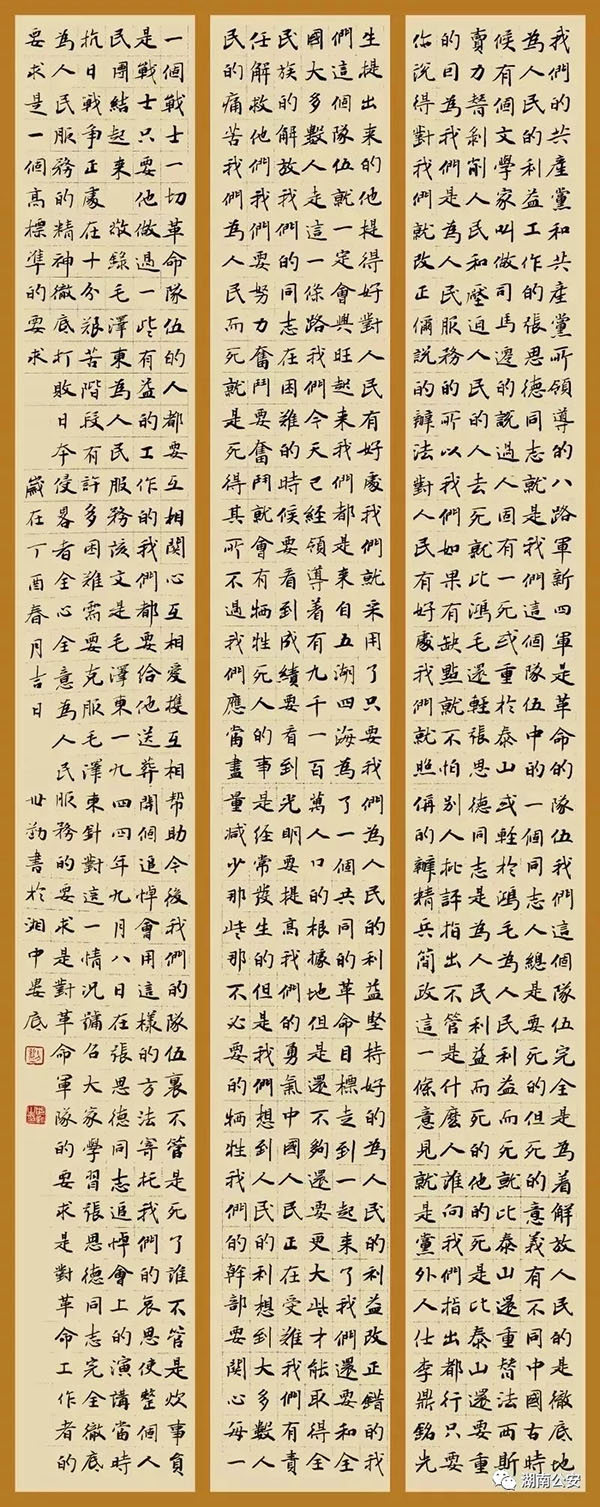 我們的共產黨和共產黨所領導的八路軍新四軍是革命的隊伍我們這個隊伍完全是為着解放人民的是徹底地
為人民的利益工作的張思德同志就是我們這個隊伍中的一個同志人總是要死的但死的意義有不同中國古時
候有個文學家叫做司馬遷的說過人固有一死或重於泰山或輕於鴻毛為人民利益而死就比泰山還重替法西斯
賣力替剝削人民和壓迫人民的人去死就比鴻毛還輕張思德同志是為人民利益而死的他的死是比泰山還要重
的因為我們是為人民服務的所以我們如果有缺點就不怕別人批評指出不管是什麼人誰向我們指出都行只要
你說得對我們就改正儞說的辦法對人民有好處我們就照儞的辦精兵簡政這一條意見就是黨外人仕李鼎銘先
生提出來的他提得好對人民有好處我們就采用了只要我們為人民的利益堅持好的為人民的利益改正錯的我
們這個隊伍就一定會興旺起來我們都是來自五湖四海為了一個共同的革命目標走到一起來了我們還要和全
國大多數人走這一條路我們今天已經領導着有九千一百萬人口的根據地但是還不夠還要更大些才能取得全
民族的解放我們的同志在困難的時候要看到成績要看到光明要提高我們的勇氣中國人民正在受難我們有責
任解救他們我們要努力奮鬥要奮鬥就會有牺牲死人的事是經常發生的但是我們想到人民的利想到大多數人
民的痛苦我們為人民而死就是死得其所不過我們應當盡量減少那些那不必要的牺牲我們的幹部要關心每一
一個戰士一切革命隊伍的人都要互相關心互相愛護互相幫助今後我們的隊伍裏不管是死了誰不管是炊事員
是戰士只要他做過一些有益的工作的我們都要給他送葬開個追悼會用這樣的方法寄托我們的哀思使整個人
民團結起來 敬錄毛澤東為人民服務該文是毛澤東一九四四年九月八日在張思德同志追悼會上的演講當時
抗日戰爭正處在十分艱苦階段有許多困難需要克服毛澤東針對這一情況號召大家學習張思德同志完全徹底
為人民服務的精神徹底打敗日本侵畧者全心全意為人民服務的要求是對革命軍隊的要求是對革命工作者的
要求是一個高標準的要求 歲在丁酉春月吉日 世勤書於湘中婁底
湖南公安